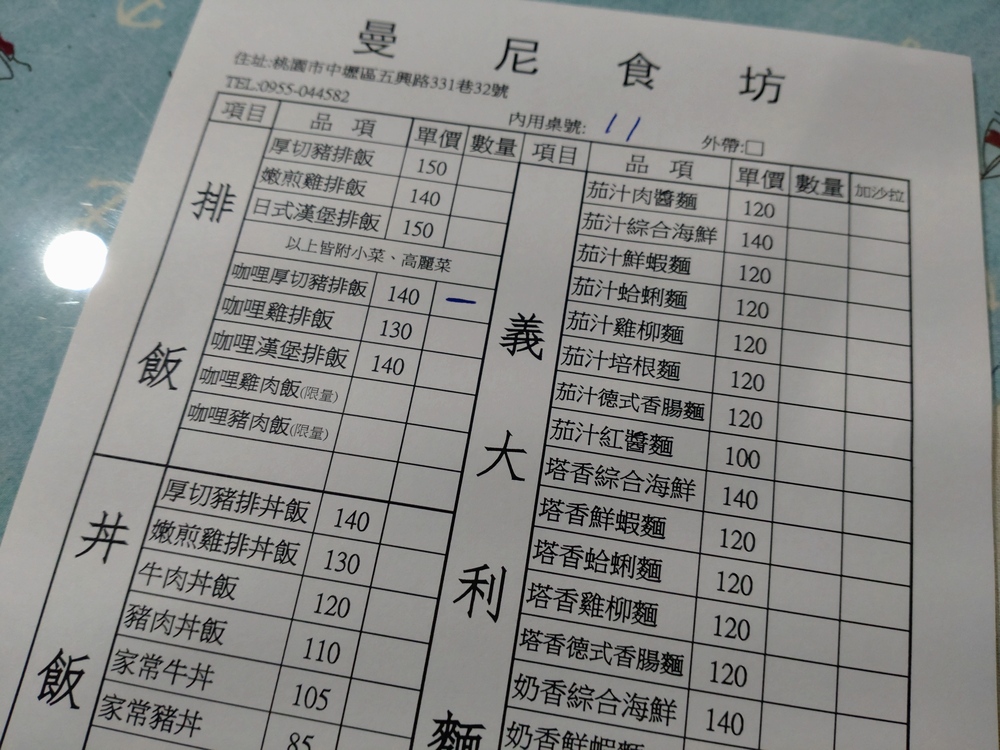 曼尼食坊
住址:桃園市中壢區五興路331巷32號
TEL:0955-044582
內用桌號: 11 外帶:□
項目 品項 單價 數量
排飯
厚切豬排飯 150
嫩煎雞排飯 140
日式漢堡排飯 150
以上皆附小菜、高麗菜
咖哩厚切豬排飯 140 一
咖哩雞排飯 130
咖哩漢堡排飯 140
咖哩雞肉飯(限量)
咖哩豬肉飯(限量)
丼飯
厚切豬排丼飯 140
嫩煎雞排丼飯 130
牛肉丼飯 120
豬肉丼飯 110
家常牛丼 105
家常豬丼 85
項目 品項 單價 數量 加沙拉
義大利麵
茄汁肉醬麵 120
茄汁綜合海鮮 140
茄汁鮮蝦麵 120
茄汁蛤蜊麵 120
茄汁雞柳麵 120
茄汁培根麵 120
茄汁德式香腸麵 120
茄汁紅醬麵 100
塔香綜合海鮮 140
塔香鮮蝦麵 120
塔香蛤蜊麵 120
塔香雞柳麵 120
塔香德式香腸麵 120
奶香綜合海鮮 140
奶香鮮蝦麵